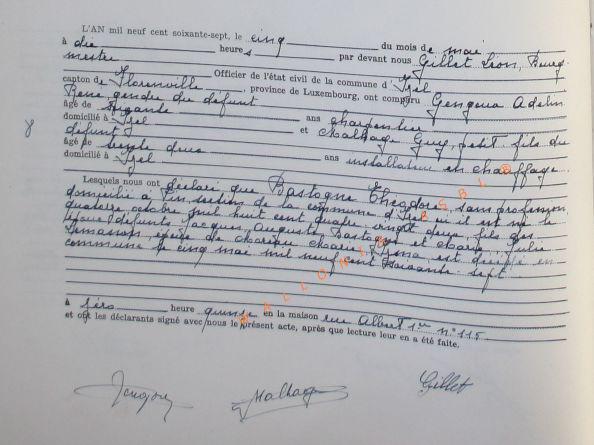 L'AN mil neuf cent soixante-sept, le cinq du mois de mai
à dix heures par devant nous Gillet Léon, Bourg-
mestre Officier de l'état civil de la commune d'Izel
canton de Florenville, province de Luxembourg, ont comparu Gengoux Adelin
René, gendre du défunt
âgé de ans charpentier
domicilié à Izel et Malhage Guy, petit fils du
défunt
âgé de vingt deux ans installateur en chauffage
domicilié à Izel
Lesquels nous ont déclaré que Bastogne Théodore, sans profession,
domicilié à section de la commune d'Izel où il est né le
quatorze octobre mil huit cent quatre vingt deux, fils des
époux défunts Jacques, Auguste Bastogne et Marie, Julie
époux de est décédé en
commune le cinq mai mil neuf cent soixante sept
à zéro heure quinze en la maison rue Albert 1er n° 115
et ont les déclarants signé avec nous le présent acte, après que lecture leur en a été faite.
Gengoux Malhage Gillet
WALLONIE ASBL ©